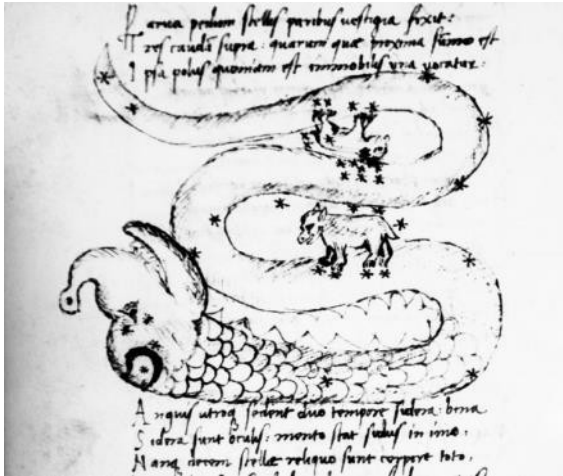 P arva pedum stellis paribus vestigia fixit:
T res caudã supra: quarum quae proxima sũmo est
I psa polus quoniam est immobilis una vocatur.
A nguis utroq sedent duo tempore sidera: bina
S idera sunt oculis: mento stat sidus in imo.
N anq decem stellae reliquo sunt corpore toto.